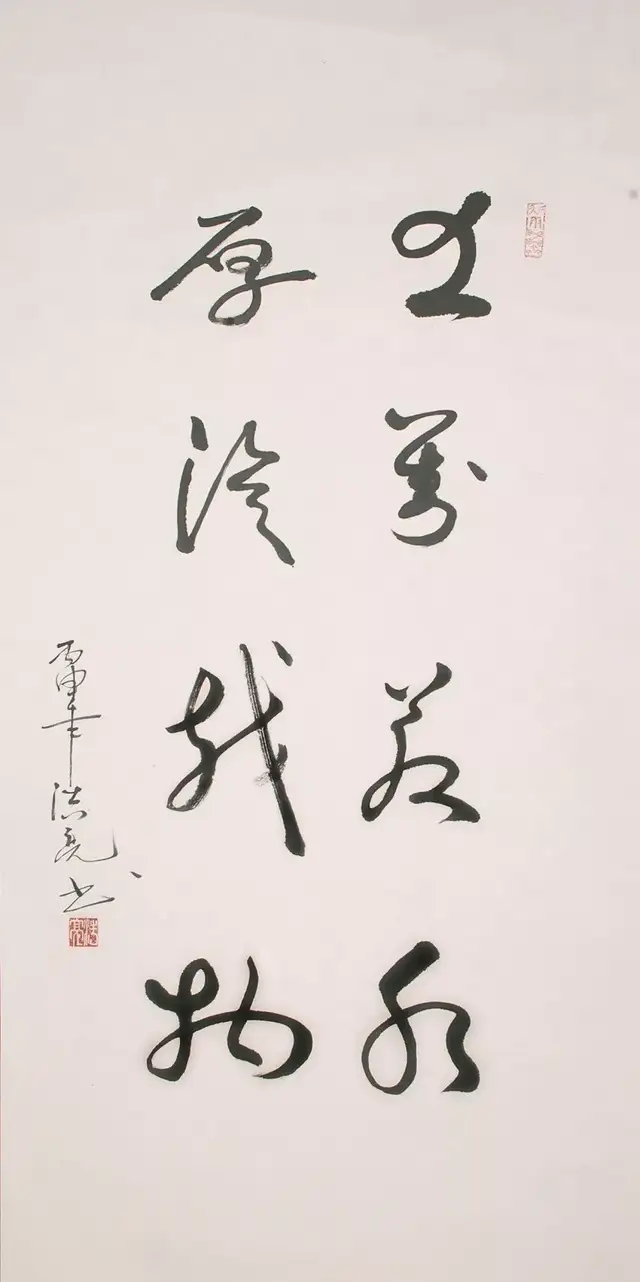 上善若水
厚德载物
丙申年洪亮书